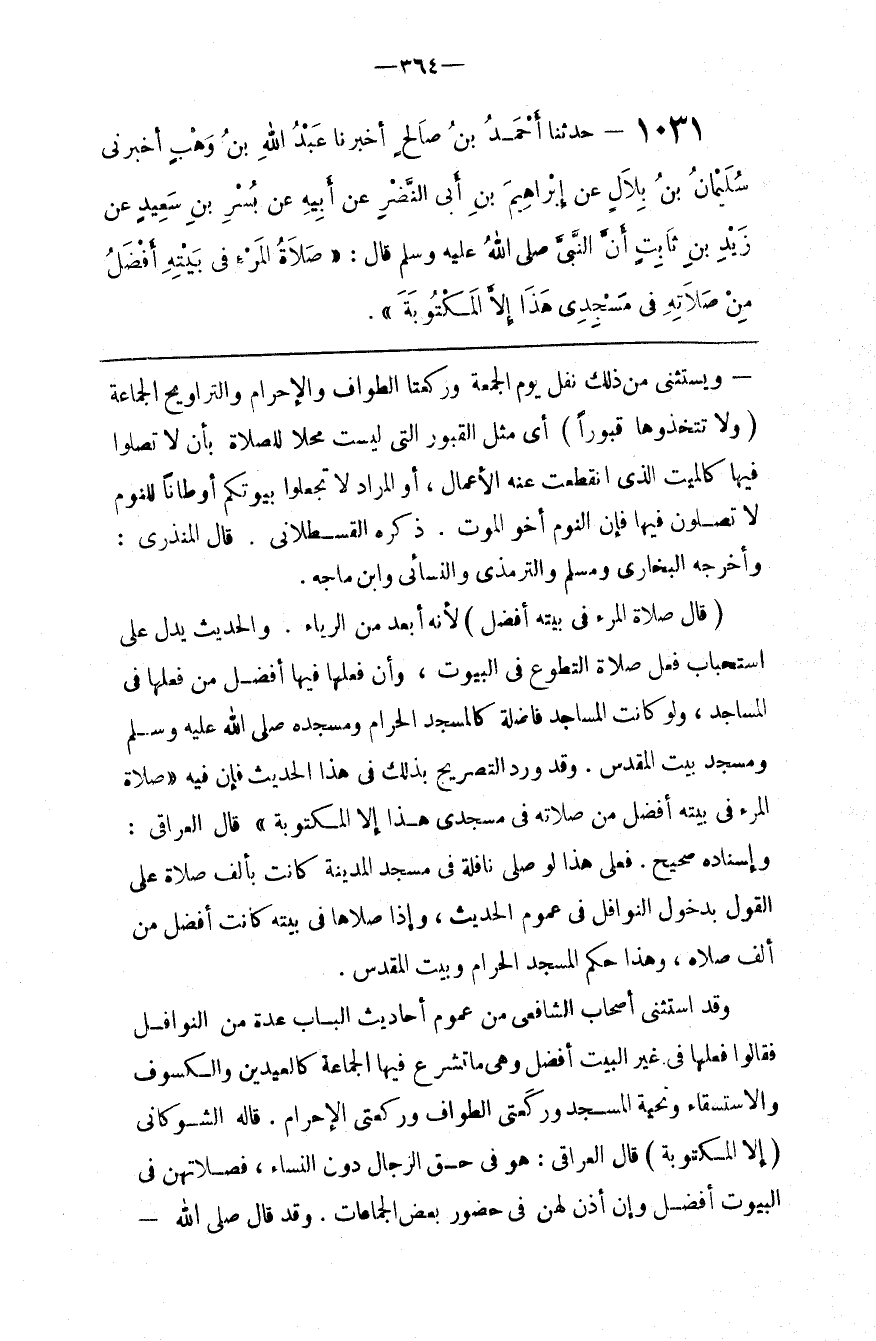 —٣٦٤—
١٠٣١ — حدثنا أَحْمَدُ بنُ صَالحٍ أخبرنا عَبْدُ اللهِ بنُ وَهْبٍ أخبرنى
سُلَيْمَانُ بنُ بِلَالٍ عن إِبْرَاهِيمَ بنِ أَبى النَّضْرِ عن أَبِيهِ عن بُسْرِ بنِ سَعِيدٍ عن
زَيْدِ بنِ ثَابِتٍ أَنَّ النَّبىَّ صلى اللهُ عليه وسلم قال : « صَلَاةُ المَرْءِ فى بَيْتِهِ أَفْضَلُ
مِنْ صَلَاتِهِ فى مَسْجِدِى هَذَا إِلاَّ المَكْتُوبَةَ » .
— ويستثنى من ذلك نفل يوم الجمعة وركعتا الطواف والإحرام والتراويح الجماعة
( ولا تتخذوها قبوراً ) أى مثل القبور التى ليست محلا للصلاة بأن لا تصلوا
فيها كالميت الذى انقطعت عنه الأعمال ، أو المراد لا تجعلوا بيوتكم أوطاناً للنوم
لا تصلون فيها فإن النوم أخو الموت . ذكره القسطلانى . قال المنذرى :
وأخرجه البخارى ومسلم والترمذى والنسائى وابن ماجه .
( قال صلاة المرء فى بيته أفضل ) لأنه أبعد من الرياء . والحديث يدل على
استحباب فعل صلاة التطوع فى البيوت ، وأن فعلها فيها أفضل من فعلها فى
المساجد ، ولو كانت المساجد فاضلة كالمسجد الحرام ومسجده صلى الله عليه وسلم
ومسجد بيت المقدس . وقد ورد التصريح بذلك فى هذا الحديث فإن فيه «صلاة
المرء فى بيته أفضل من صلاته فى مسجدى هذا إلا المكتوبة » قال العراقى :
وإسناده صحيح . فعلى هذا لو صلى نافلة فى مسجد المدينة كانت بألف صلاة على
القول بدخول النوافل فى عموم الحديث ، وإذا صلاها فى بيته كانت أفضل من
ألف صلاه ، وهذا حكم المسجد الحرام وبيت المقدس .
وقد استثنى أصحاب الشافعى من عموم أحاديث الباب عدة من النوافل
فقالوا فعلها فى غير البيت أفضل وهى ماتشرع فيها الجماعة كالعيدين والكسوف
والاستسقاء وتحية المسجد وركَعتى الطواف وركعتى الإحرام . قاله الشوكانى
( إلا المكتوبة ) قال العراقى : هو فى حق الرجال دون النساء ، فصلاتهن فى
البيوت أفضل وإن أذن لهن فى حضور بعض الجماعات . وقد قال صلى الله —